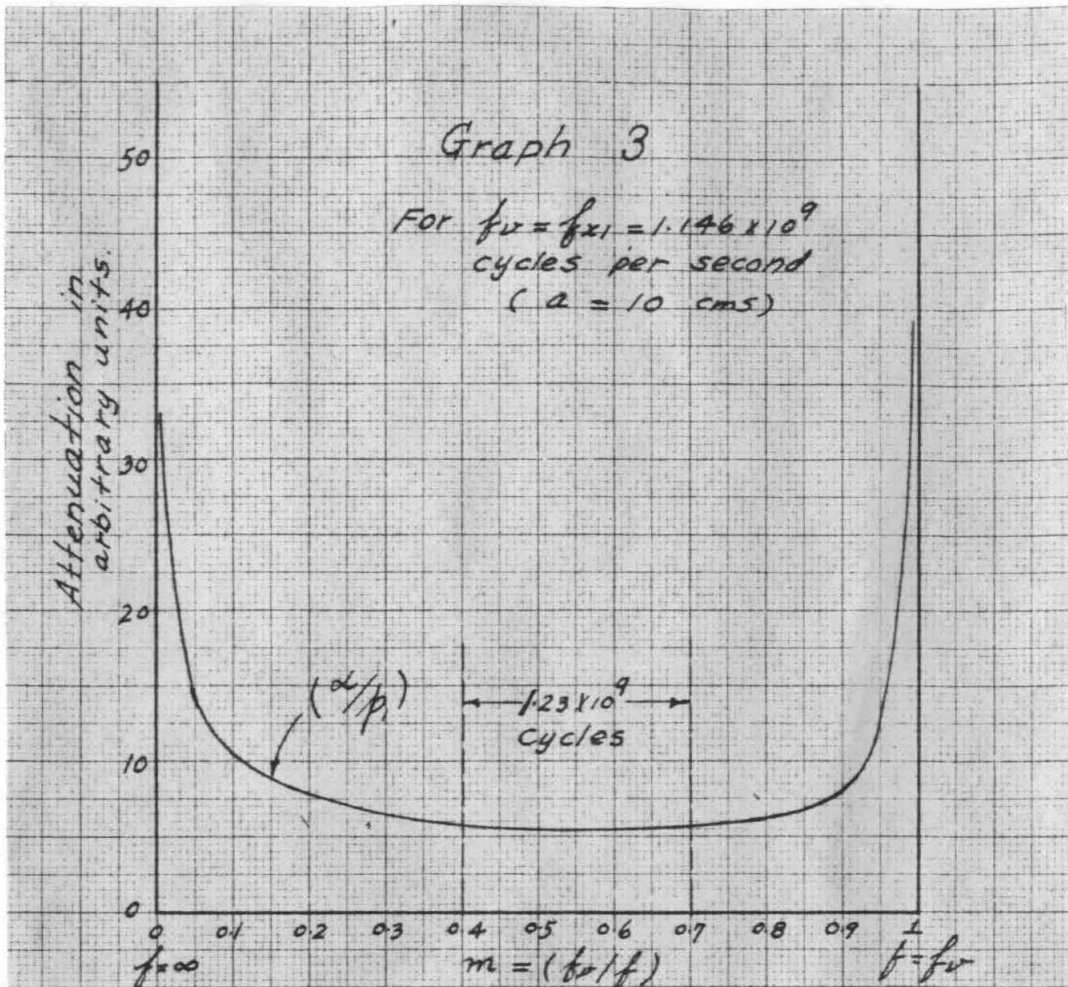 Graph 3
For fν = fx1 = 1.146 x 10⁹
cycles per second
( a = 10 cms)
Attenuation in
arbitrary units.
50
40
30
20
10
0
(α/p₁)
1.23x10⁹
cycles
0 0.1 0.2 0.3 0.4 0.5 0.6 0.7 0.8 0.9 1
f=∞
m = (fν/f)
f=fν